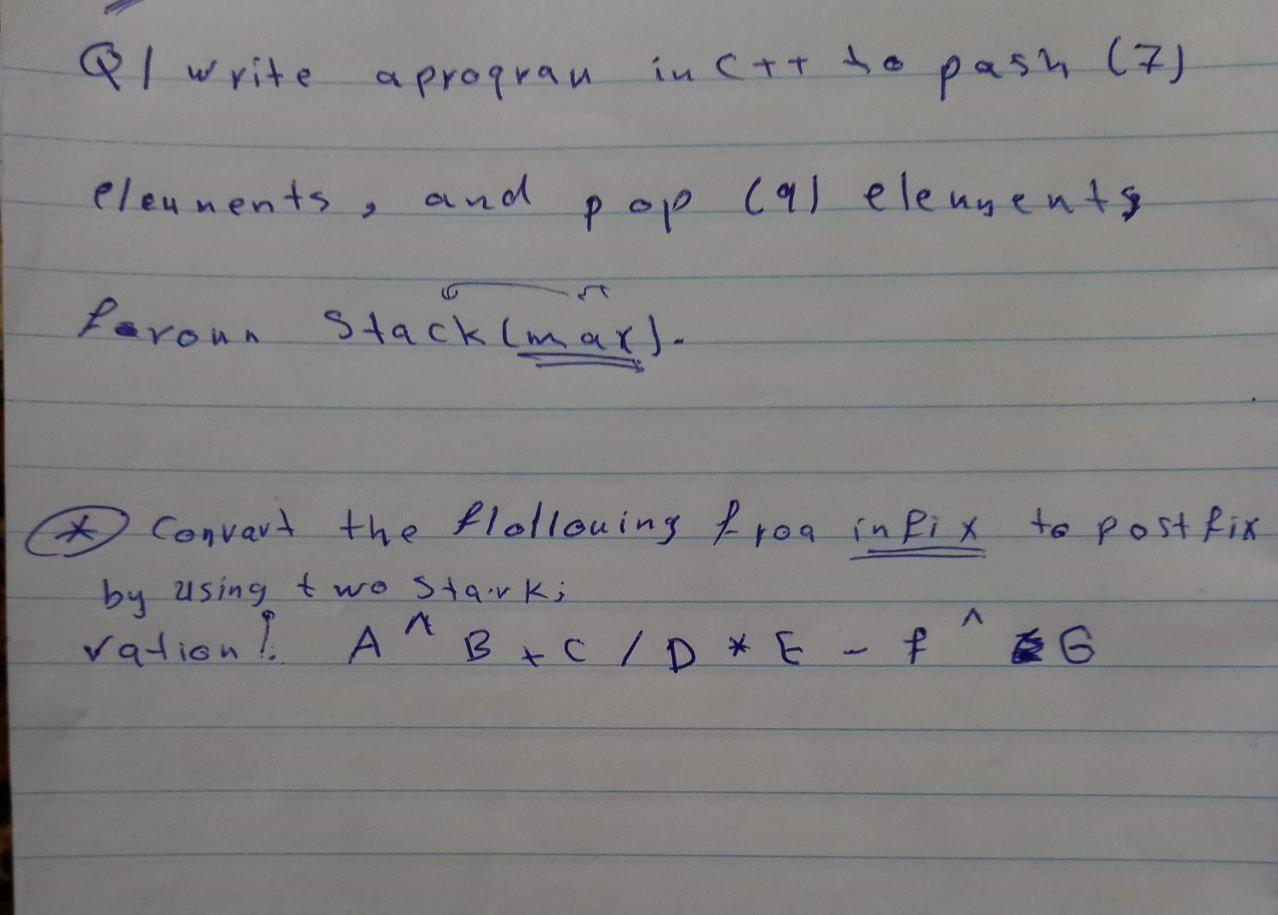 Q1 write aprogran in C++ to pash (7)
elements, and pop (9) elements
feroun Stack (max).
* Convart the flollowing froa infix to postfix
by using two Stark;
ration!. A ^ B + C / D * E - f ^ G